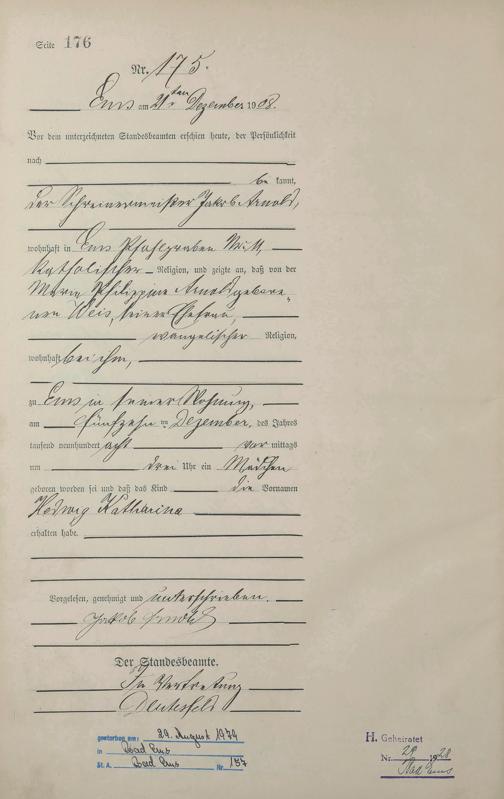 Seite 176
Nr. 175.
Ems am 21ten Dezember 1908.
Vor dem unterzeichneten Standesbeamten erschien heute, der Persönlichkeit
nach
be kannt,
der Schreinermeister Jakob Arnold,
wohnhaft in Ems Pfahlgraben Nr.
katholischer Religion, und zeigte an, daß von der
Maria Philippine Arnold gebore-
nen Weis, seiner Ehefrau,
evangelischer Religion,
wohnhaft bei ihm,
zu Ems in seiner Wohnung,
am fünfzehn ten Dezember des Jahres
tausend neunhundert acht vor mittags
um drei Uhr ein Mädchen
geboren worden sei und daß das Kind die Vornamen
Hedwig Katharina
erhalten habe.
Vorgelesen, genehmigt und unterschrieben.
Jakob Arnold
Der Standesbeamte.
In Vertretung
gestorben am: 29. August 1974
in Bad Ems
St. A. Bad Ems Nr. 137
H. Geheiratet
Nr. 29 1928
Bad Ems